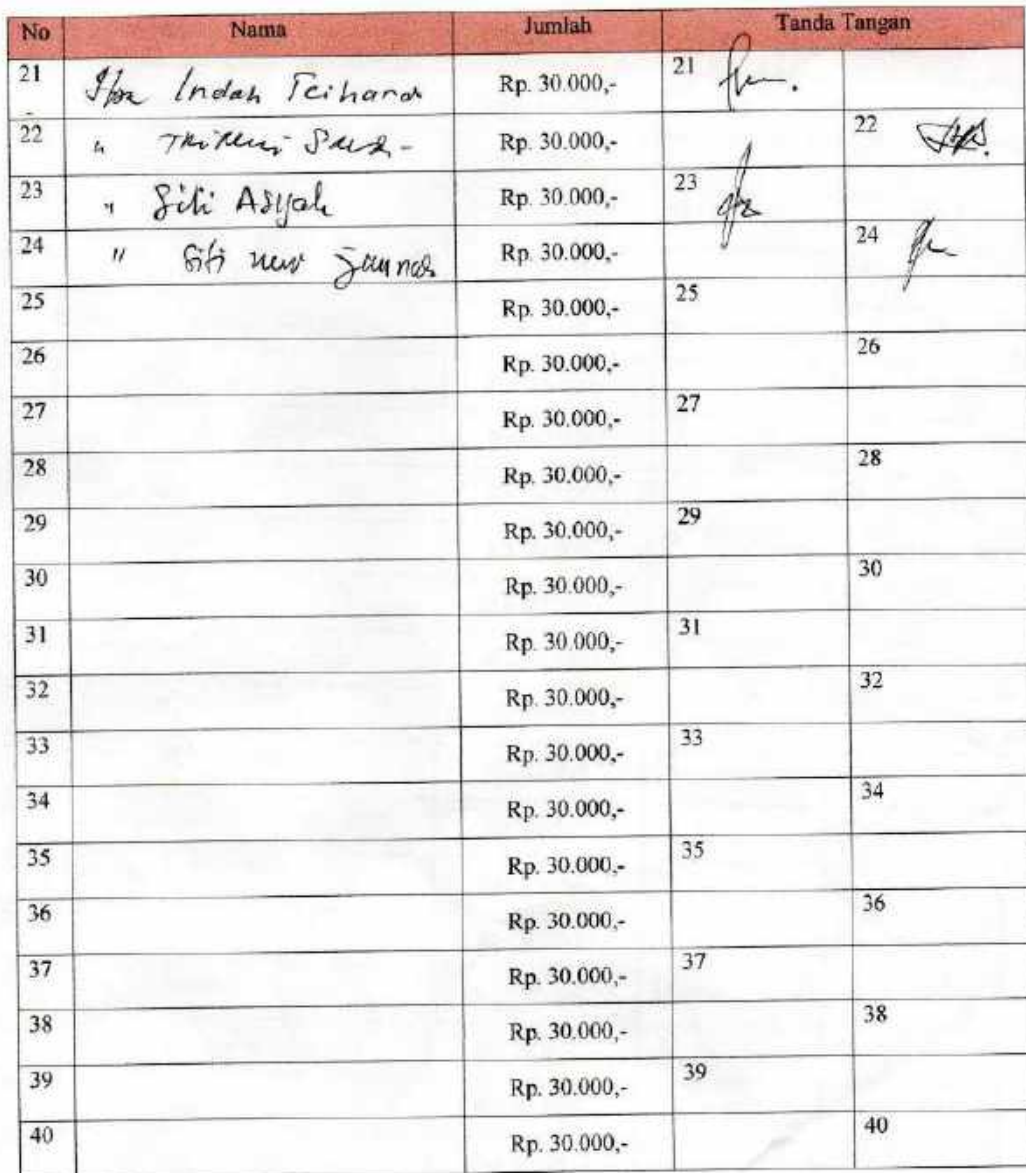 No Nama Jumlah Tanda Tangan
21 Ibu Indah Rp. 30.000,- 21
22 " Rp. 30.000,- 22
23 " Siti Asyah Rp. 30.000,- 23
24 " Siti nur Rp. 30.000,- 24
25 Rp. 30.000,- 25
26 Rp. 30.000,- 26
27 Rp. 30.000,- 27
28 Rp. 30.000,- 28
29 Rp. 30.000,- 29
30 Rp. 30.000,- 30
31 Rp. 30.000,- 31
32 Rp. 30.000,- 32
33 Rp. 30.000,- 33
34 Rp. 30.000,- 34
35 Rp. 30.000,- 35
36 Rp. 30.000,- 36
37 Rp. 30.000,- 37
38 Rp. 30.000,- 38
39 Rp. 30.000,- 39
40 Rp. 30.000,- 40